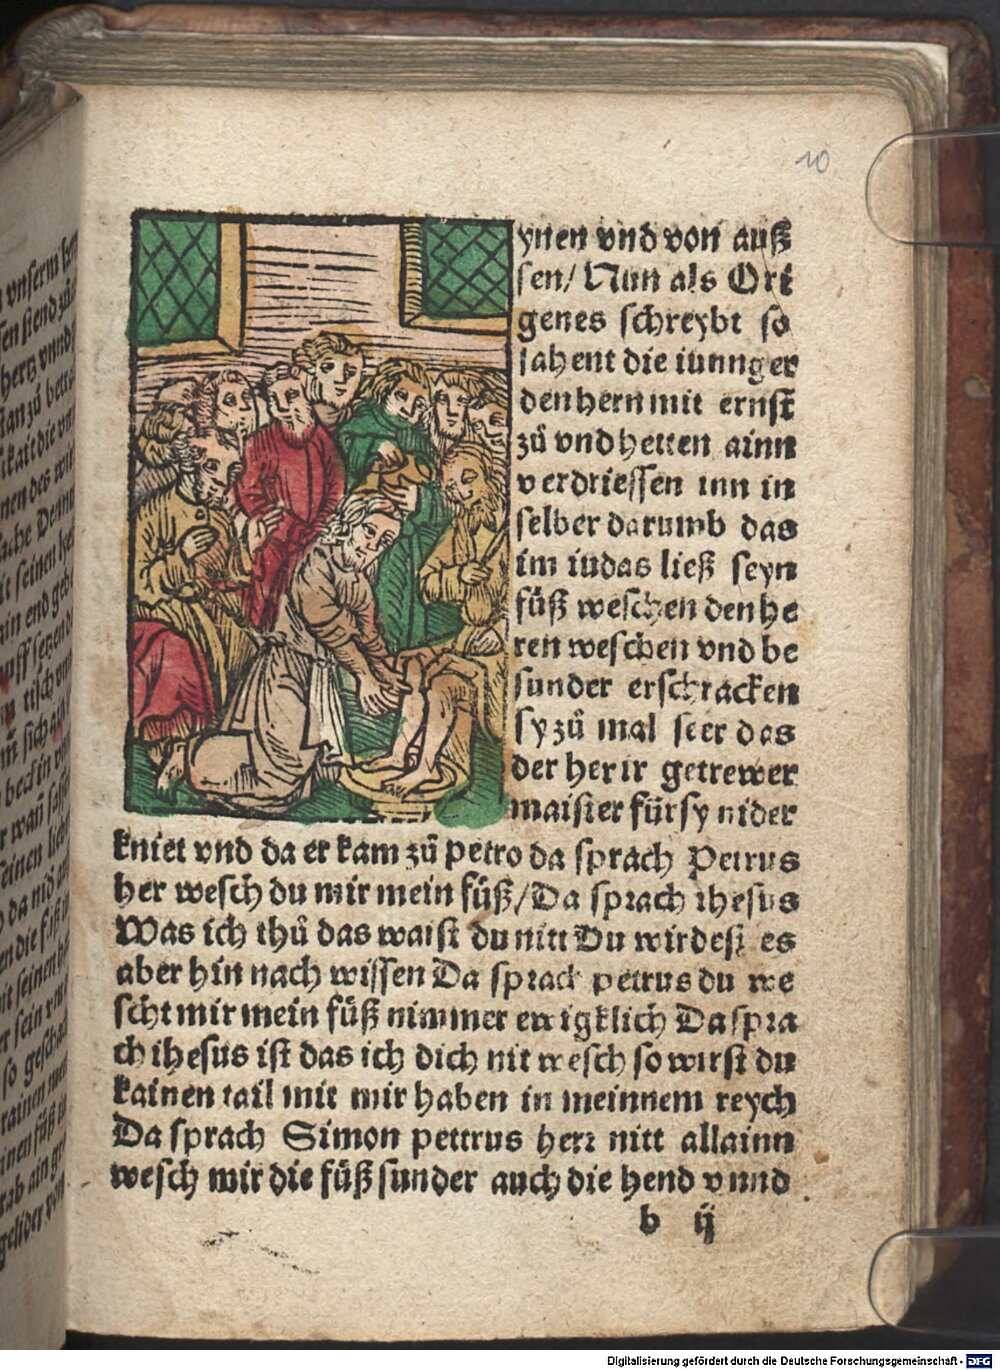 10
ynen vnd von auß
sen/ Nun als Ori
genes schreybt so
sahent die iunnger
den hern mit ernst
zů vnd hetten ainn
verdriessen inn in
selber darumb das
im iudas ließ seyn
füß weschen den he
ren weschen vnd be
sunder erschracken
sy zů mal seer das
der her ir getrewer
maister für sy nider
kniet vnd da er kam zů petro da sprach Petrus
her wesch du mir mein füß/ Da sprach ihesus
Was ich thů das waist du nitt Du wirdest es
aber hin nach wissen Da sprach petrus du we
scht mir mein füß nimmer ewigklich Da spra
ch ihesus ist das ich dich nit wesch so wirst du
kainen tail mit mir haben in meinnem reych
Da sprach Simon pettrus herr nitt allainn
wesch mir die füß sunder auch die hend vnnd
b ij
Digitalisierung gefördert durch die Deutsche Forschungsgemeinschaft - DFG